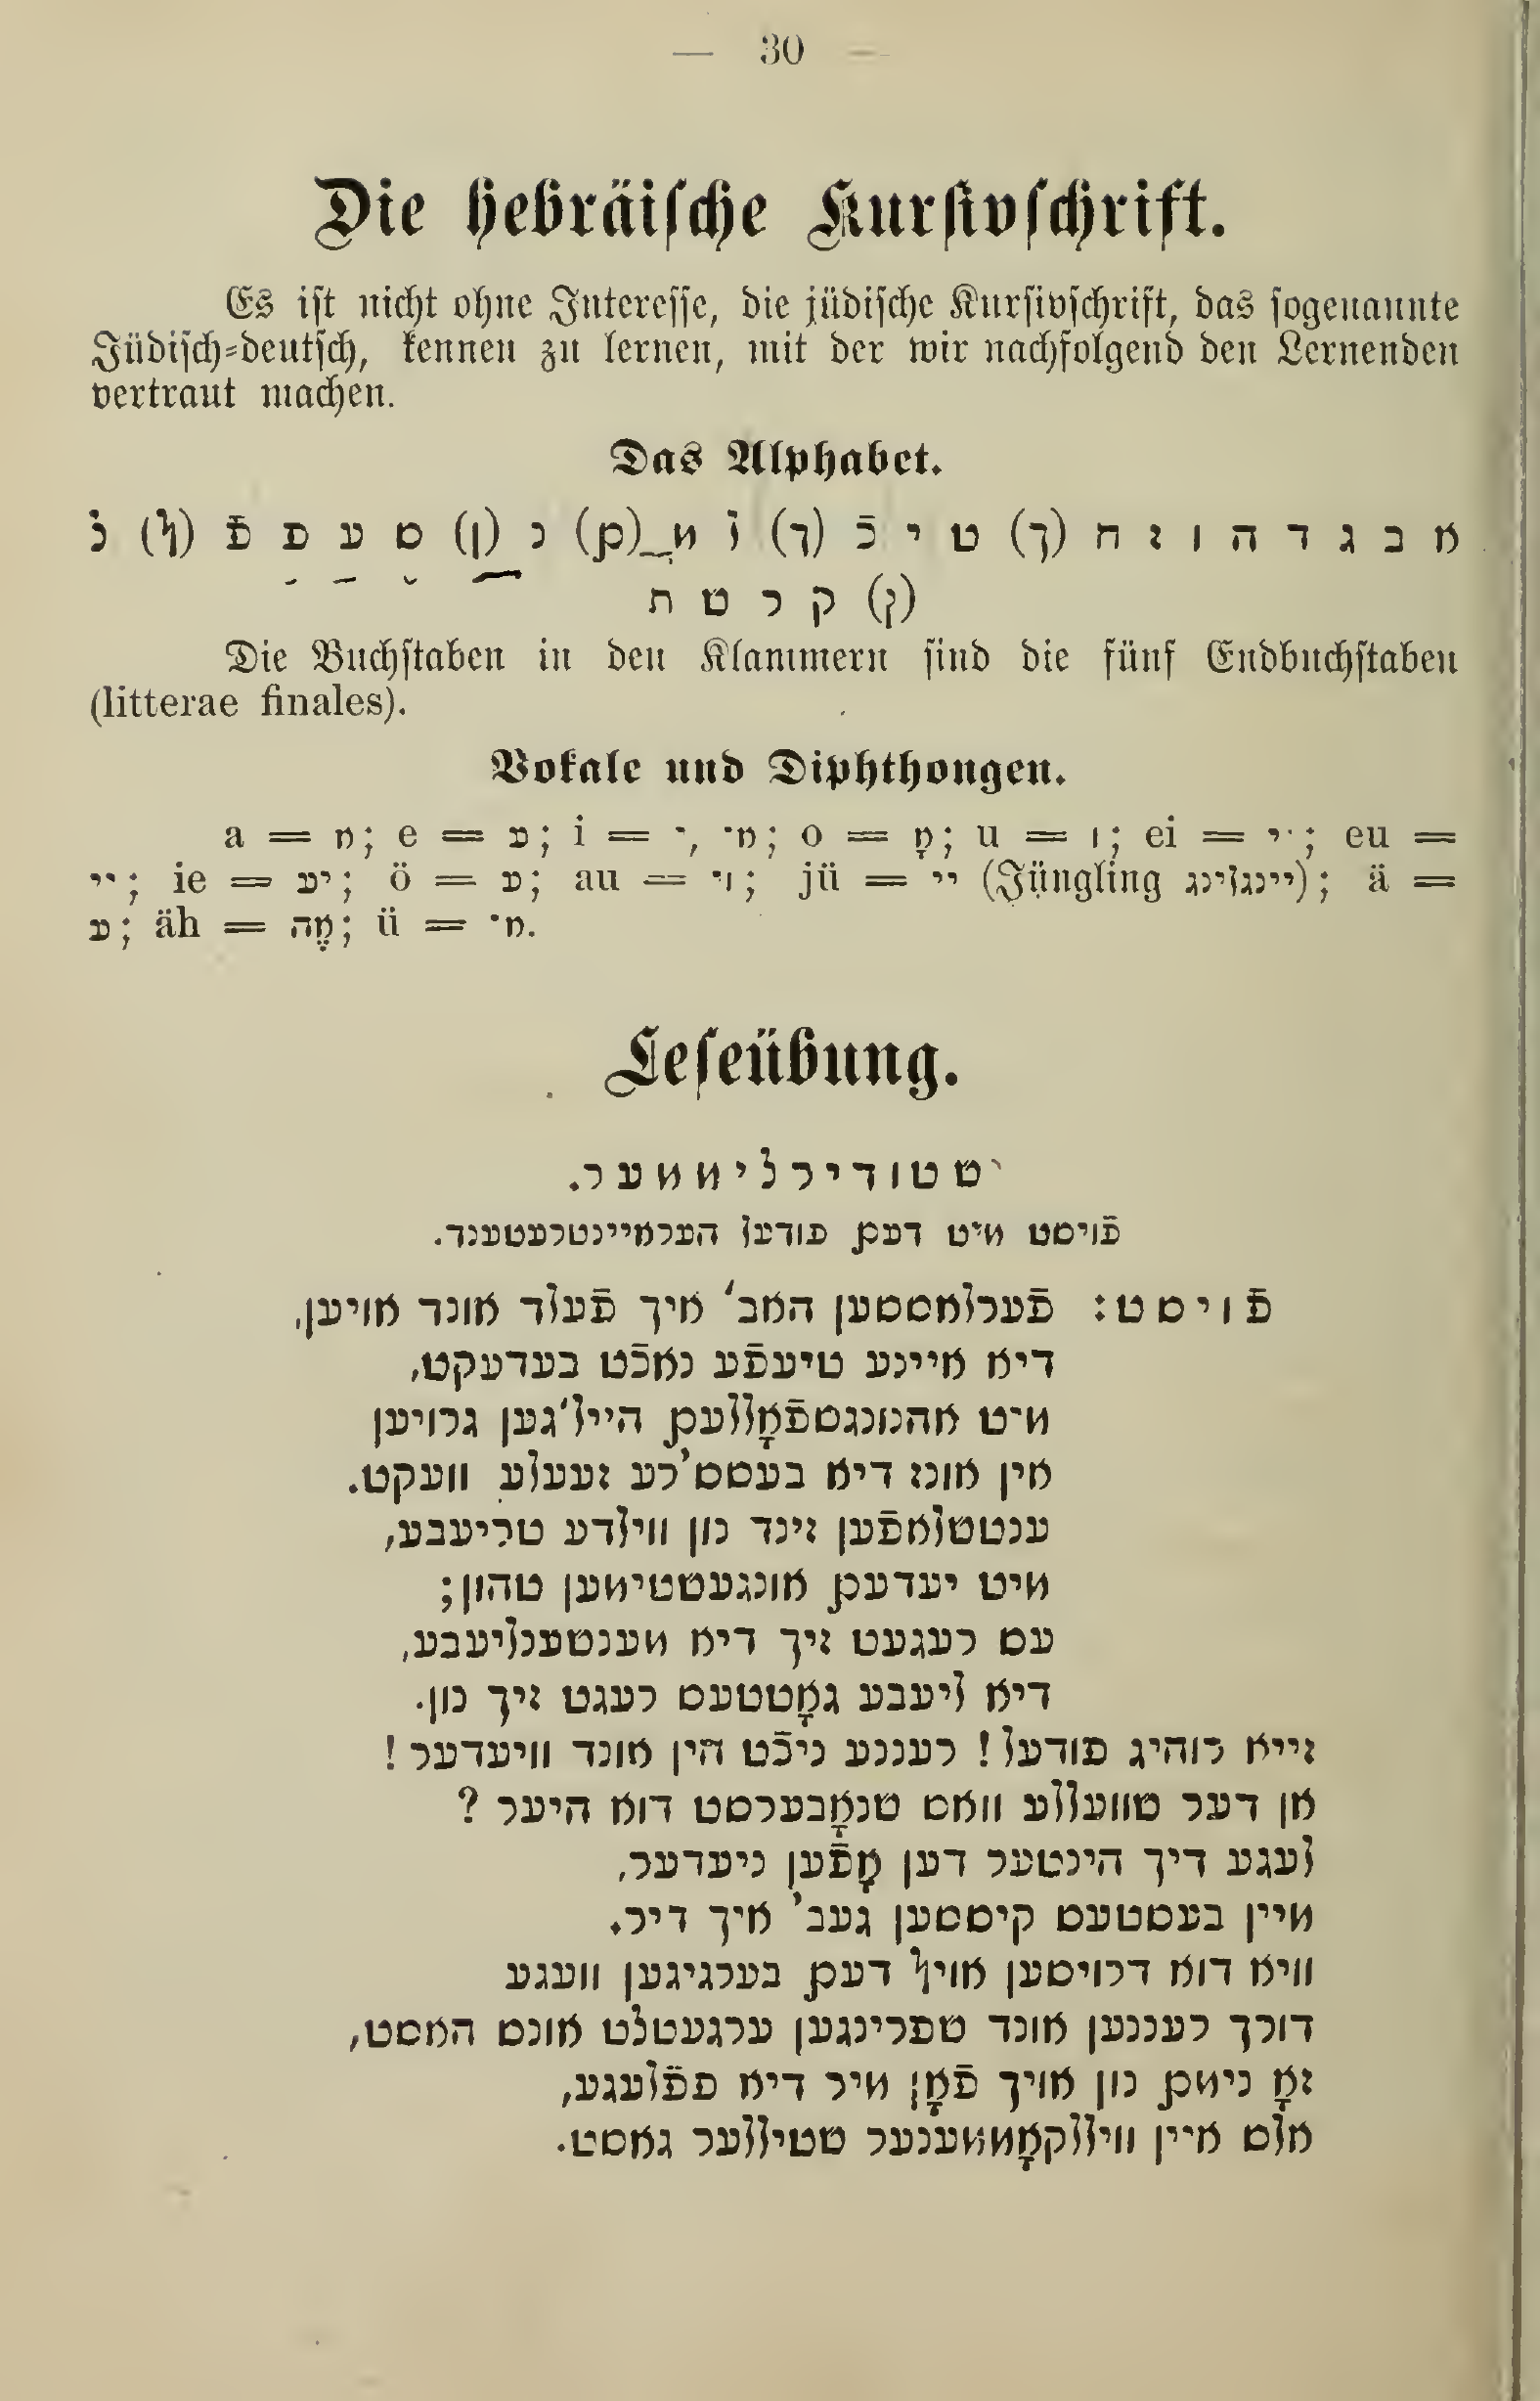 — 30 —
Die hebräische Kursivschrift.
Es ist nicht ohne Interesse, die jüdische Kursivschrift, das sogenannte
Jüdisch-deutsch, kennen zu lernen, mit der wir nachfolgend den Lernenden
vertraut machen.
Das Alphabet.
א ב ג ד ה ו ז ח (ך) ט י כֿ (ך) ל מ (ם) נ (ן) ס ע פ פֿ (ף) צ
(ץ) ק ר ש ת
Die Buchstaben in den Klammern sind die fünf Endbuchstaben
(litterae finales).
Vokale und Diphthongen.
a = א; e = ע; i = י, אי; o = אָ; u = ו; ei = יי; eu =
יי; ie = יע; ö = ע; au = וי; jü = יי (Jüngling יינגלינג); ä =
ע; äh = אֶה; ü = אי.
Leseübung.
שטודירצימער.
פֿויסט מיט דעם פודעל הערא​יינטרעטענד.
פֿויסט: פֿערלאססען האב' איך פֿעלד אונד אויען,
דיא איינע טיעפֿע נאכֿט בעדעקט,
מיט אהנונגספֿאָללעם היילי'גען גרויען
אין אונז דיא בעסס'רע זעעלע וועקט.
ענטשלאפֿען זינד נון ווילדע טריעבע,
מיט יעדעם אונגעשטימען טהון;
עס רעגעט זיך דיא מענשענליעבע,
דיא ליעבע גאָטטעס רעגט זיך נון.
זייא רוהיג פודעל! רעננע ניכֿט הין אונד וויעדער!
אן דער שוועללע וואס שנאָבערסט דוא היער?
לעגע דיך הינטער דען אָפֿען ניעדער,
מיין בעסטעס קיססען געב' איך דיר.
וויא דוא דרויסען אויף דעם בערגיגען וועגע
דורך רעננען אונד שפרינגען ערגעטצט אונס האסט,
זאָ נימם נון אויך פֿאָן מיר דיא פפֿלעגע,
אלס איין ווי​ללקאָממענער שטיללער גאסט.